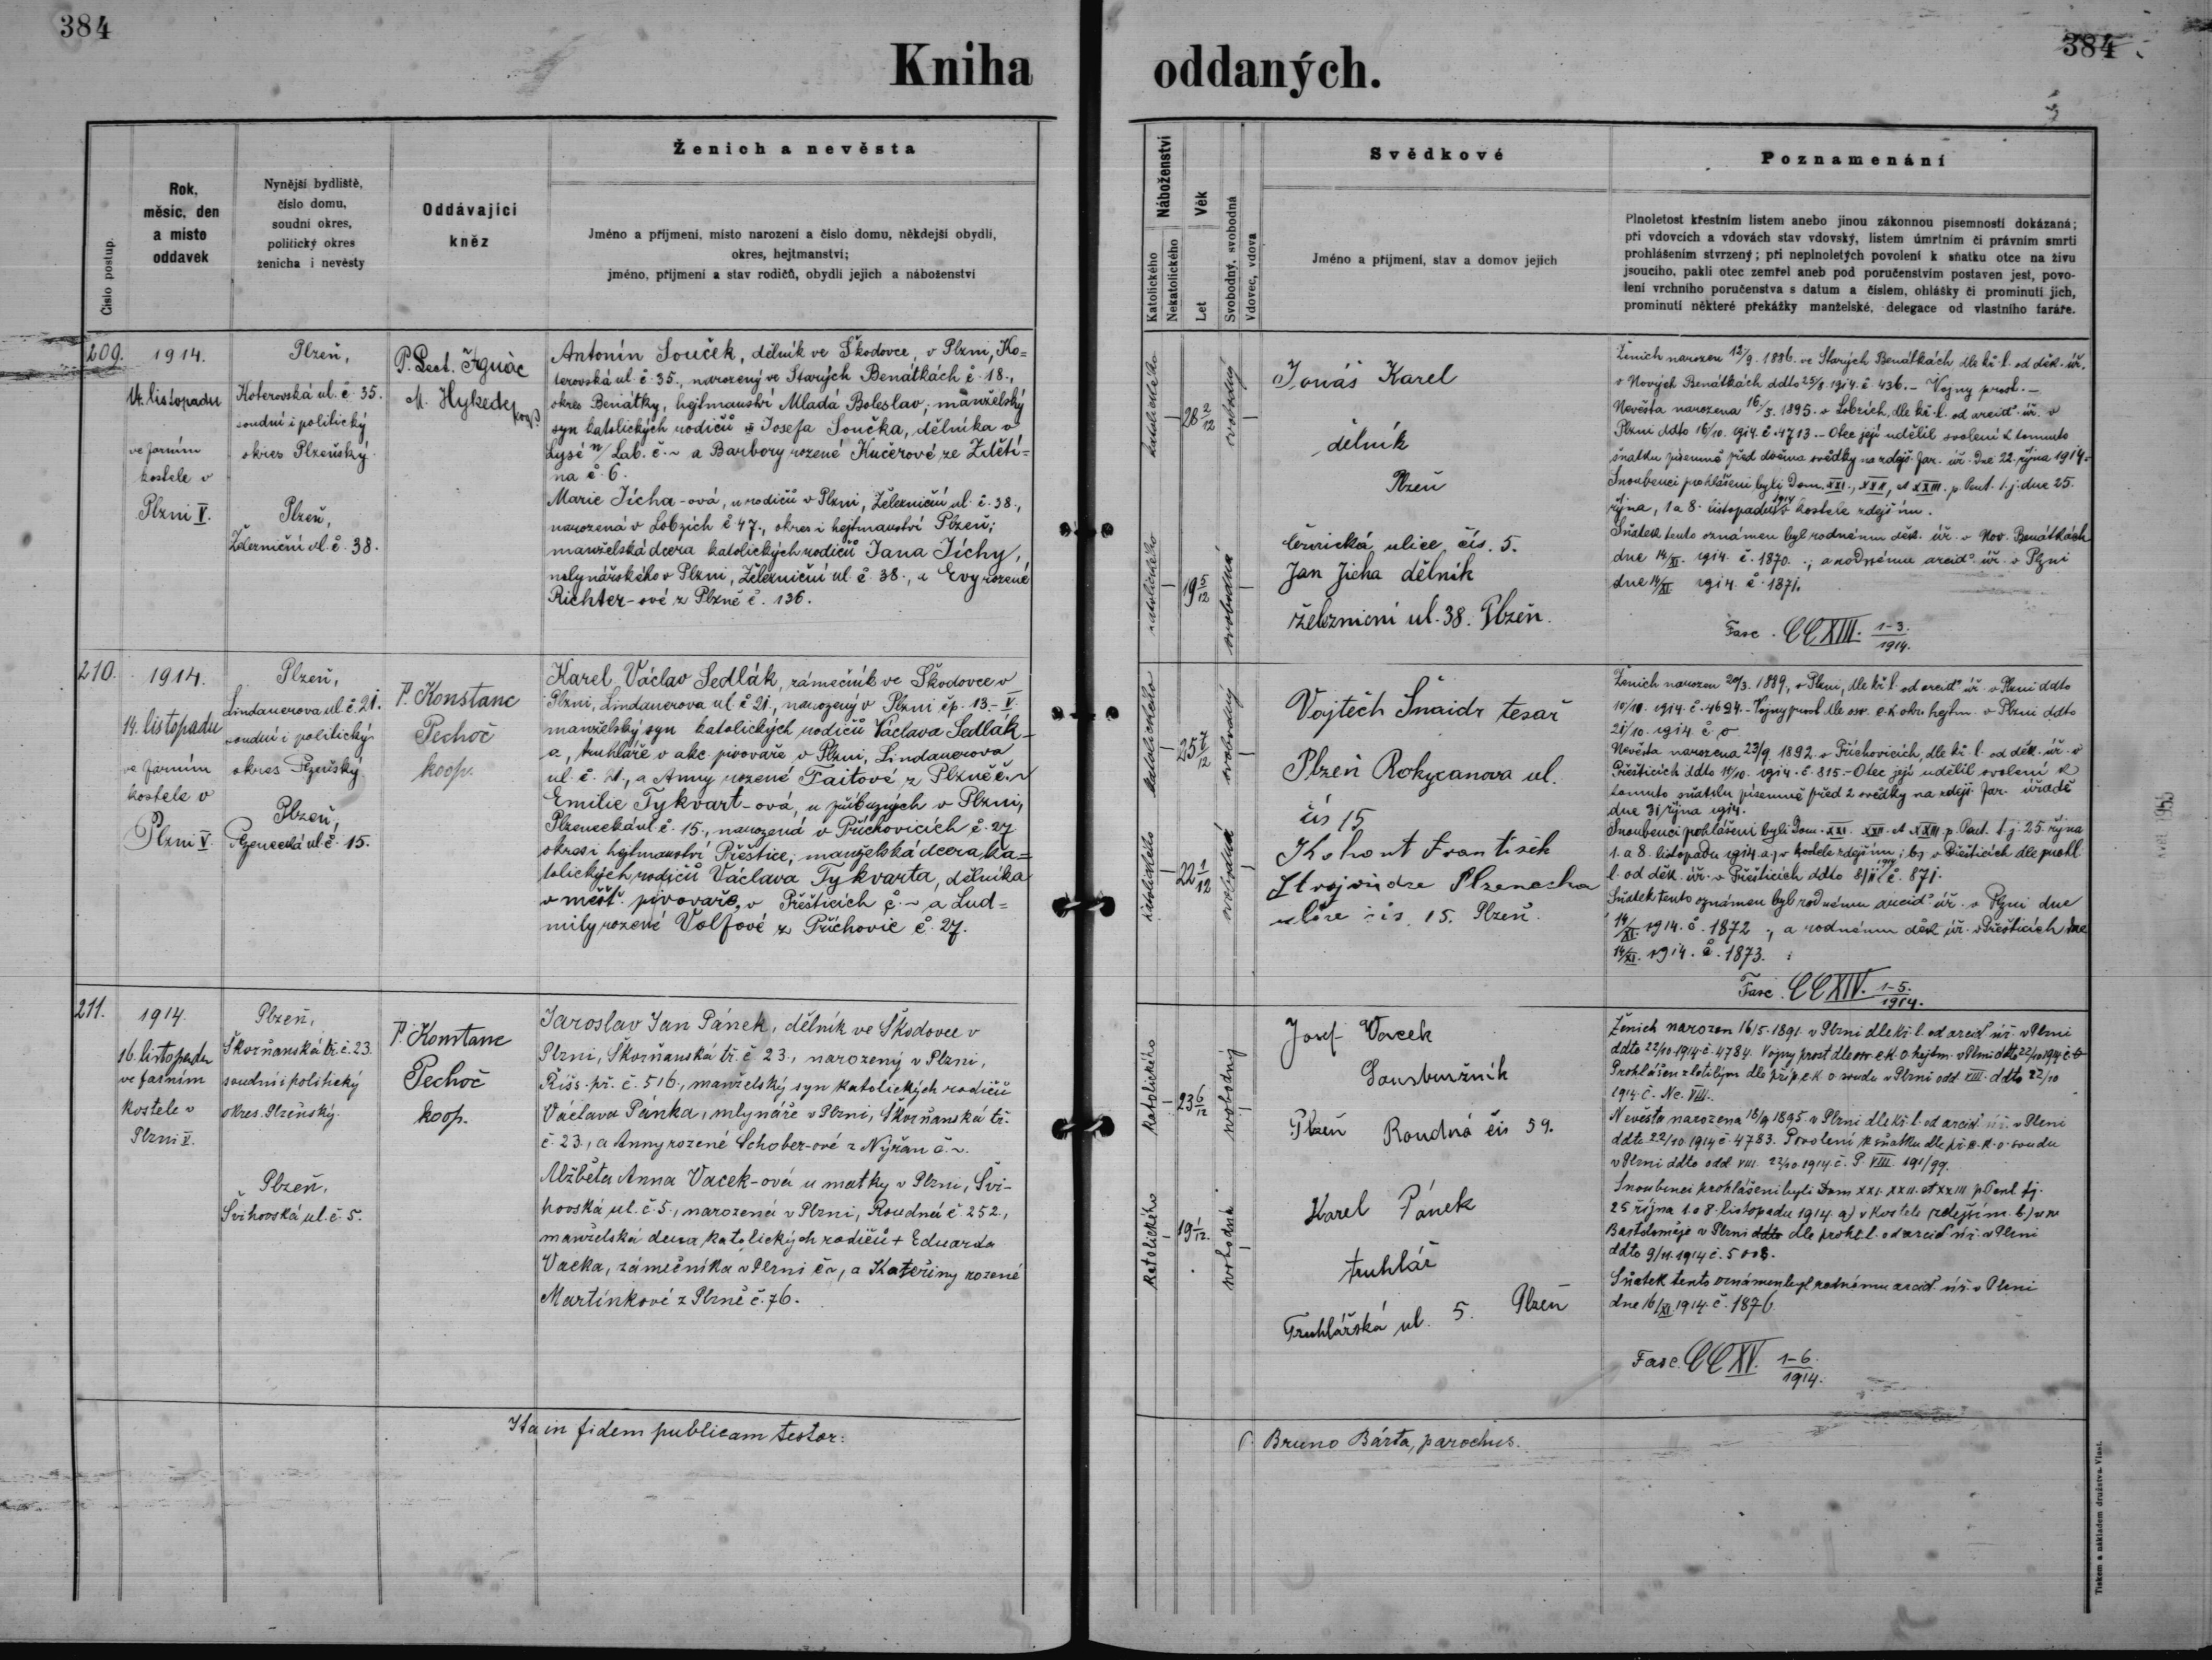 384
Kniha
oddaných.
384
Číslo postup.
Rok,
měsíc, den
a místo
oddavek
Nynější bydliště,
číslo domu,
soudní okres,
politický okres
ženicha i nevěsty
Oddávající
kněz
Ženich a nevěsta
Jméno a příjmení, místo narození a číslo domu, někdejší obydlí,
okres, hejtmanství;
jméno, příjmení a stav rodičů, obydlí jejich a náboženství
Náboženství
Katolického
Nekatolického
Věk
Let
Svobodný, svobodná
Vdovec, vdova
Svědkové
Jméno a příjmení, stav a domov jejich
Poznamenání
Plnoletost křestním listem anebo jinou zákonnou písemností dokázaná;
při vdovcích a vdovách stav vdovský, listem úmrtním či právním smrti
prohlášením stvrzený; při neplnoletých povolení k sňatku otce na živu
jsoucího, pakli otec zemřel aneb pod poručenstvím postaven jest, povo-
lení vrchního poručenstva s datum a číslem, ohlášky či prominutí jich,
prominutí některé překážky manželské, delegace od vlastního faráře.
209.
1914.
14. listopadu
ve farním
kostele v
Plzni V.
Plzeň,
Koterovská ul. č. 35.
soudní i politický
okres Plzeňský.
Plzeň,
Železniční ul. č. 38.
P. Lect. Ignác
M. Hykede
Antonín Souček, dělník ve Škodovce, v Plzni, Ko=
terovská ul. č. 35., narozený ve Starých Benátkách č. 18.,
okres Benátky, hejtmanství Mladá Boleslav, manželský
syn katolických rodičů Josefa Součka, dělníka v
Lysé n/Lab. č. ~ a Barbory rozené Kučerové ze Ztětí-
na č. 6.
Marie Jícha-ová, u rodičů v Plzni, Železniční ul. č. 38.,
narozená v Lobzích č. 47., okres i hejtmanství Plzeň;
manželská dcera katolických rodičů Jana Jíchy,
mlynářského v Plzni, Železniční ul. č. 38., a Evy rozené
Richter-ové z Plzně č. 136.
katolického
28 2/12
svobodný
katolického
19 5/12
svobodná
Jonáš Karel
dělník
Plzeň
ulice čís. 5.
Jan Jícha dělník
železniční ul. 38. Plzeň.
Ženich narozen 12/9. 1886. ve Starých Benátkách, dle kř. l. od děk. úř.
v Nových Benátkách ddto 25/9. 1914. č. 436. – Vojny prost. –
Nevěsta narozena 16./5. 1895. v Lobzích, dle kř. l. od arcid. úř. v
Plzni ddto 16/10. 1914. č. 4713. – Otec její udělil svolení k tomuto
sňatku písemně před dvěma svědky na zdejš. far. úř. Dne 22. října 1914.
Snoubenci prohlášeni byli Dom. XXI., XXII., et XXIII. p. Pent. t. j. dne 25.
října, 1 a 8. listopadu 1914 v kostele zdejším.
Sňatek tento oznámen byl rodnému děk. úř. v Nov. Benátkách
dne 14/XI. 1914. č. 1870. ; a rodnému arcid. úř. v Plzni
dne 14/XI. 1914. č. 1871.
Fasc. CCXIII. 1-3./1914.
210.
1914.
14. listopadu
ve farním
kostele v
Plzni V.
Plzeň,
Lindauerova ul. č. 21.
soudní i politický
okres Plzeňský
Plzeň,
Plzenecká ul. č. 15.
P. Konstanc
Pechoč
koop.
Karel Václav Sedlák, zámečník ve Škodovce v
Plzni, Lindauerova ul. č. 21., narozený v Plzni čp. 13.-V.
manželský syn katolických rodičů Václava Sedlák-
a, truhláře v akc. pivovaře v Plzni, Lindauerova
ul. č. 21., a Anny rozené Faitové z Plzně č. ~
Emilie Tykvart-ová, u příbuzných v Plzni,
Plzenecká ul. č. 15., narozená v Příchovicích č. 27
okres i hejtmanství Přeštice; manželská dcera ka=
tolických rodičů Václava Tykvarta, dělníka
v měšť. pivovaře, v Přešticích č. ~ a Lud=
mily rozené Volfové z Příchovic č. 27.
katolického
25 7/12
svobodný
katolického
22 1/12
svobodná
Vojtěch Šnaidr tesař
Plzeň Rokycanova ul.
čís 15
Kohout František
Strojvůdce Plzenecka
ulice čís. 15. Plzeň.
Ženich narozen 20/3. 1889, v Plzni, dle kř. l. od arcid. úř. v Plzni ddto
10/10. 1914. č. 4694. – Vojny prost dle osv. c. k. okr. hejtm. v Plzni ddto
21/10. 1914. č. 0.
Nevěsta narozena 23/9. 1892. v Příchovicích, dle kř. l. od děk. úř. v
Přešticích ddto 14/10. 1914. č. 815. – Otec její udělil svolení k
tomuto sňatku písemně před 2 svědky na zdejš. far. úřadě
dne 31 října 1914.
Snoubenci prohlášeni byli Dom. XXI. XXII. et XXIII. p. Pent. t. j. 25. října
1. a 8. listopadu 1914. a) v kostele zdejším; b) v Přešticích dle prohl.
l. od děk. úř. v Přešticích ddto 8/11 1914 č. 871.
Sňatek tento oznámen byl rodnému arcid. úř. v Plzni dne
14/XI. 1914. č. 1872 ., a rodnému děk. úř. v Přešticích dne
14/XI. 1914. č. 1873.
Fasc. CCXIV. 1-5./1914.
211.
1914.
16. listopadu
ve farním
kostele v
Plzni V.
Plzeň,
Škorňanská tř. č. 23.
soudní i politický
okres Plzeňský.
Plzeň,
Švihovská ul. č. 5.
P. Konstanc
Pechoč
koop.
Jaroslav Jan Pánek, dělník ve Škodovce v
Plzni, Škorňanská tř. č. 23., narozený v Plzni,
Říšs. př. č. 516., manželský syn katolických rodičů
Václava Pánka, mlynáře v Plzni, Škorňanská tř.
č. 23., a Anny rozené Schober-ové z Nýřan č. ~.
Alžběta Anna Vacek-ová u matky v Plzni, Švi-
hovská ul. č. 5., narozená v Plzni, Roudná č. 252.,
manželská dcera katolických rodičů + Eduarda
Vacka, zámečníka v Plzni č. ~, a Kateřiny rozené
Martínkové z Plzně č. 76.
Katolického
23 6/12
svobodný
Katolického
19 1/12.
svobodná
Josef Vacek
Plzeň Roudná čís 59.
Karel Pánek
truhlář
Truhlářská ul. 5. Plzeň
Ženich narozen 16/5. 1891. v Plzni dle kř. l. od arcid. úř. v Plzni
ddto 22/10 1914 č. 4784. Vojny prost dle osv. c. k. o. hejtm. v Plzni ddto 22/10 1914 č. 0
Prohlášen zletilým dle příp. c. k. o. soudu v Plzni odd. VIII. ddto 22/10
1914 č. Nc. VIII.
Nevěsta narozena 18/9 1895. v Plzni dle kř. l. od arcid. úř. v Plzni
ddto 22/10 1914 č. 4783. Povolení k sňatku dle př. c. k. o. soudu
v Plzni ddto odd. VIII. 22/10 1914. č. P. VIII. 191/99.
Snoubenci prohlášeni byli Dom XXI. XXII. et XXIII. p. Pent. tj.
25 října 1. a 8. listopadu 1914. a) v kostele zdejším. b) u sv
Bartoloměje v Plzni ddto dle prohl. l. od arcid. úř. v Plzni
ddto 9/11. 1914 č. 5008.
Sňatek tento oznámen byl rodnému arcid. úř. v Plzni
dne 16/XI 1914. č. 1876.
Fasc. CCXV. 1-6./1914.
Ita in fidem publicam testor:
P. Bruno Bárta, parochus.
Tiskem a nákladem družstva Vlast.